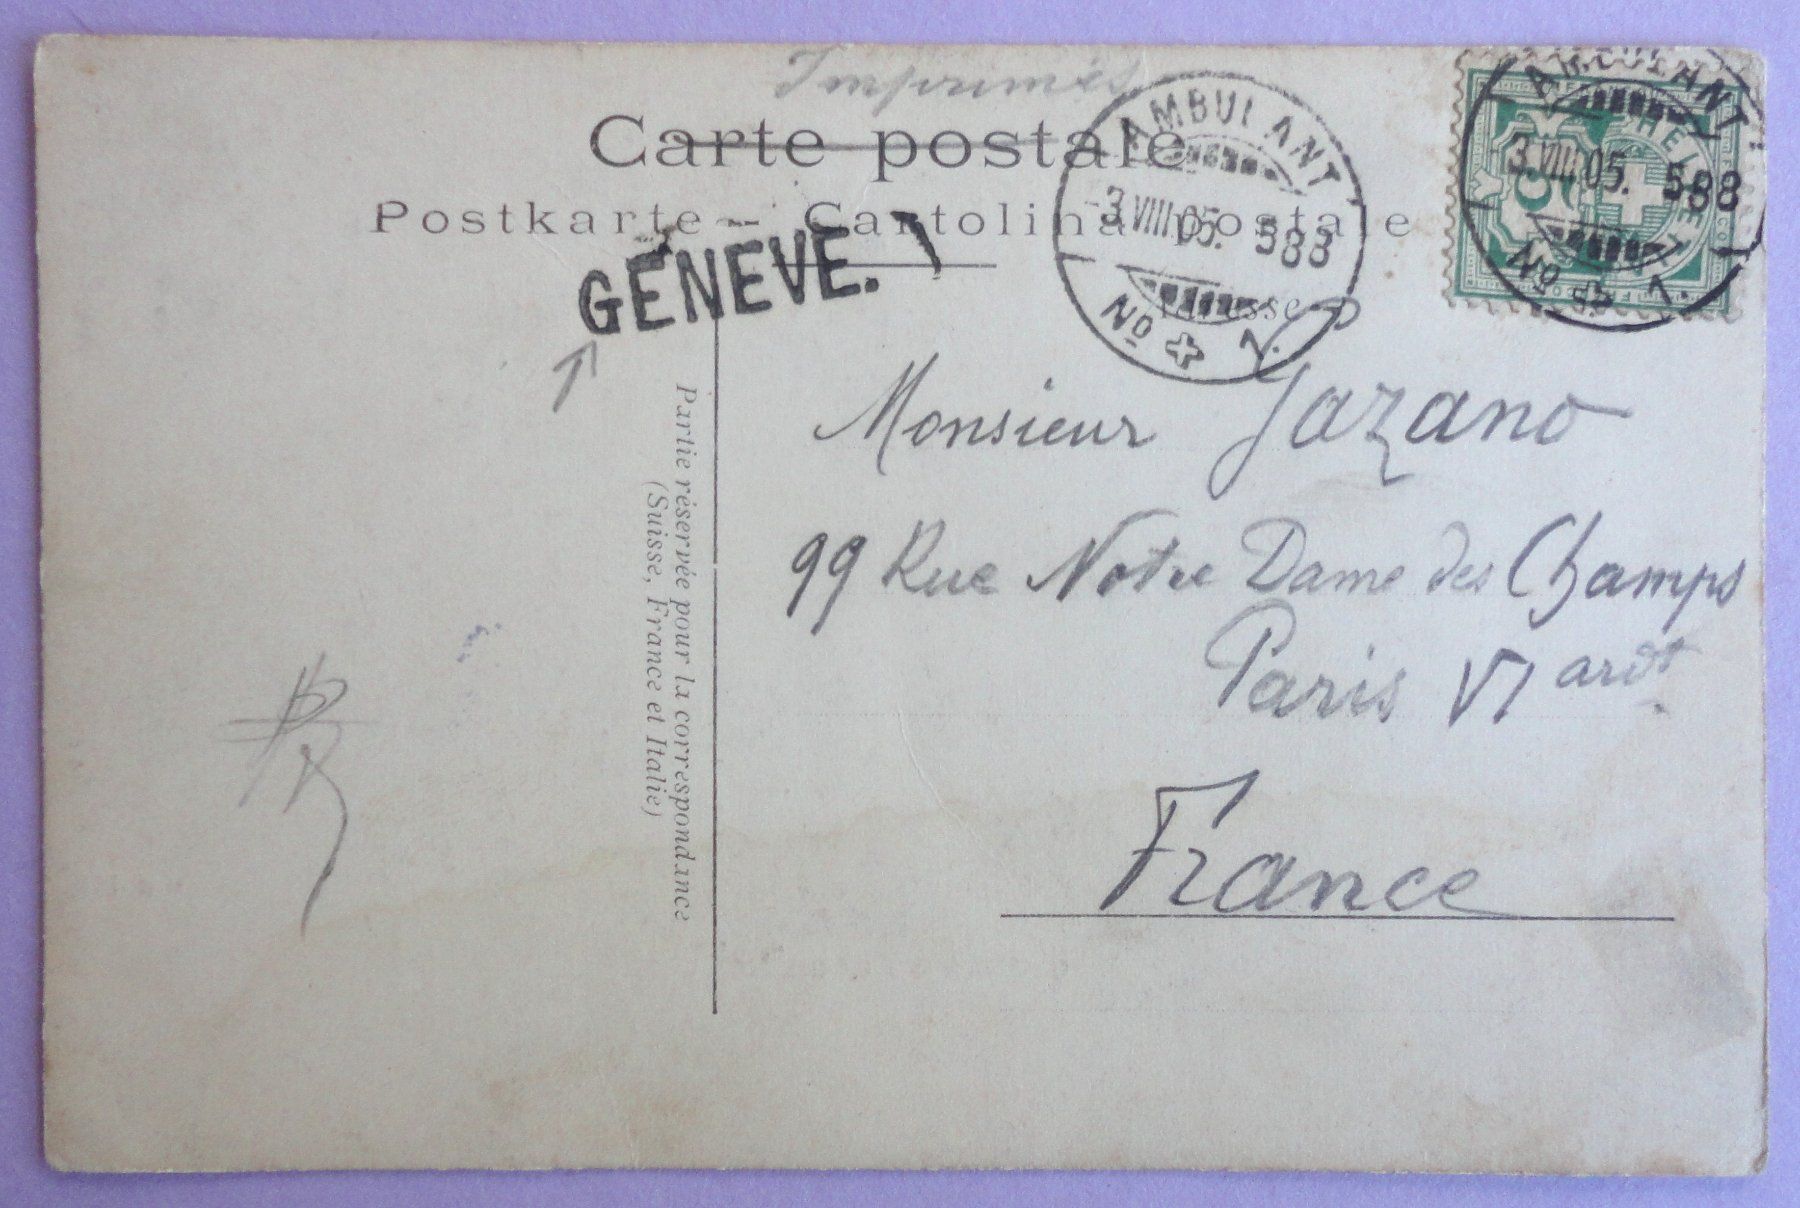 Imprimés
Carte postale
Postkarte – Cartolina postale
GENÈVE.
AMBULANT
-3.VIII.05. 588
No 1.
AMBULANT
3.VIII.05. 588
No 1.
HELVETIA
5
Adresse
Monsieur Jazano
99 Rue Notre Dame des Champs
Paris VI ardt.
France
Partie réservée pour la correspondance
(Suisse, France et Italie)